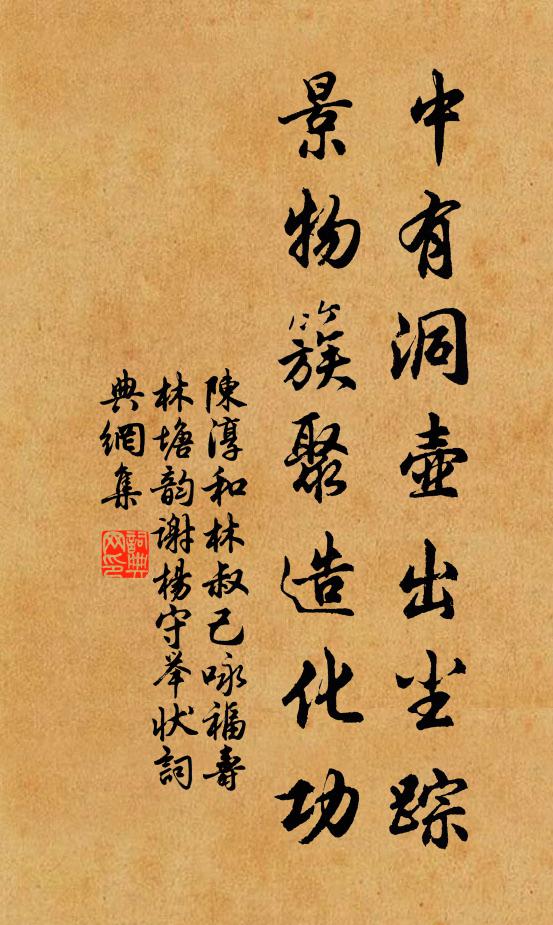 中有洞壺出尘踪
景物簇聚造化功
陳淳和林叔己咏福壽
林塘韵谢楊守举状詞
典網集
詞典网印